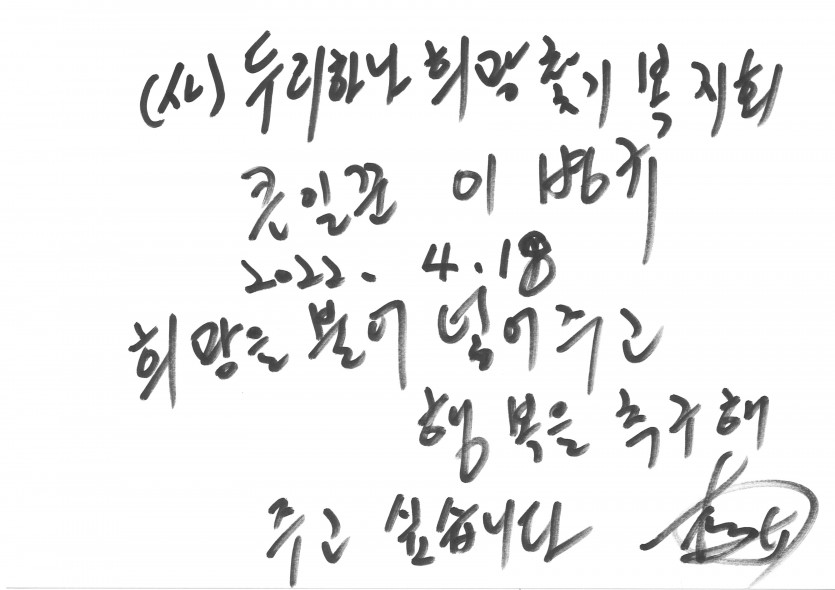 (사) 두리하나 희망찾기 복지회
큰일꾼 이병키
2022. 4. 18
희망을 불어 넣어주고
행복을 추구해
주고 싶습니다